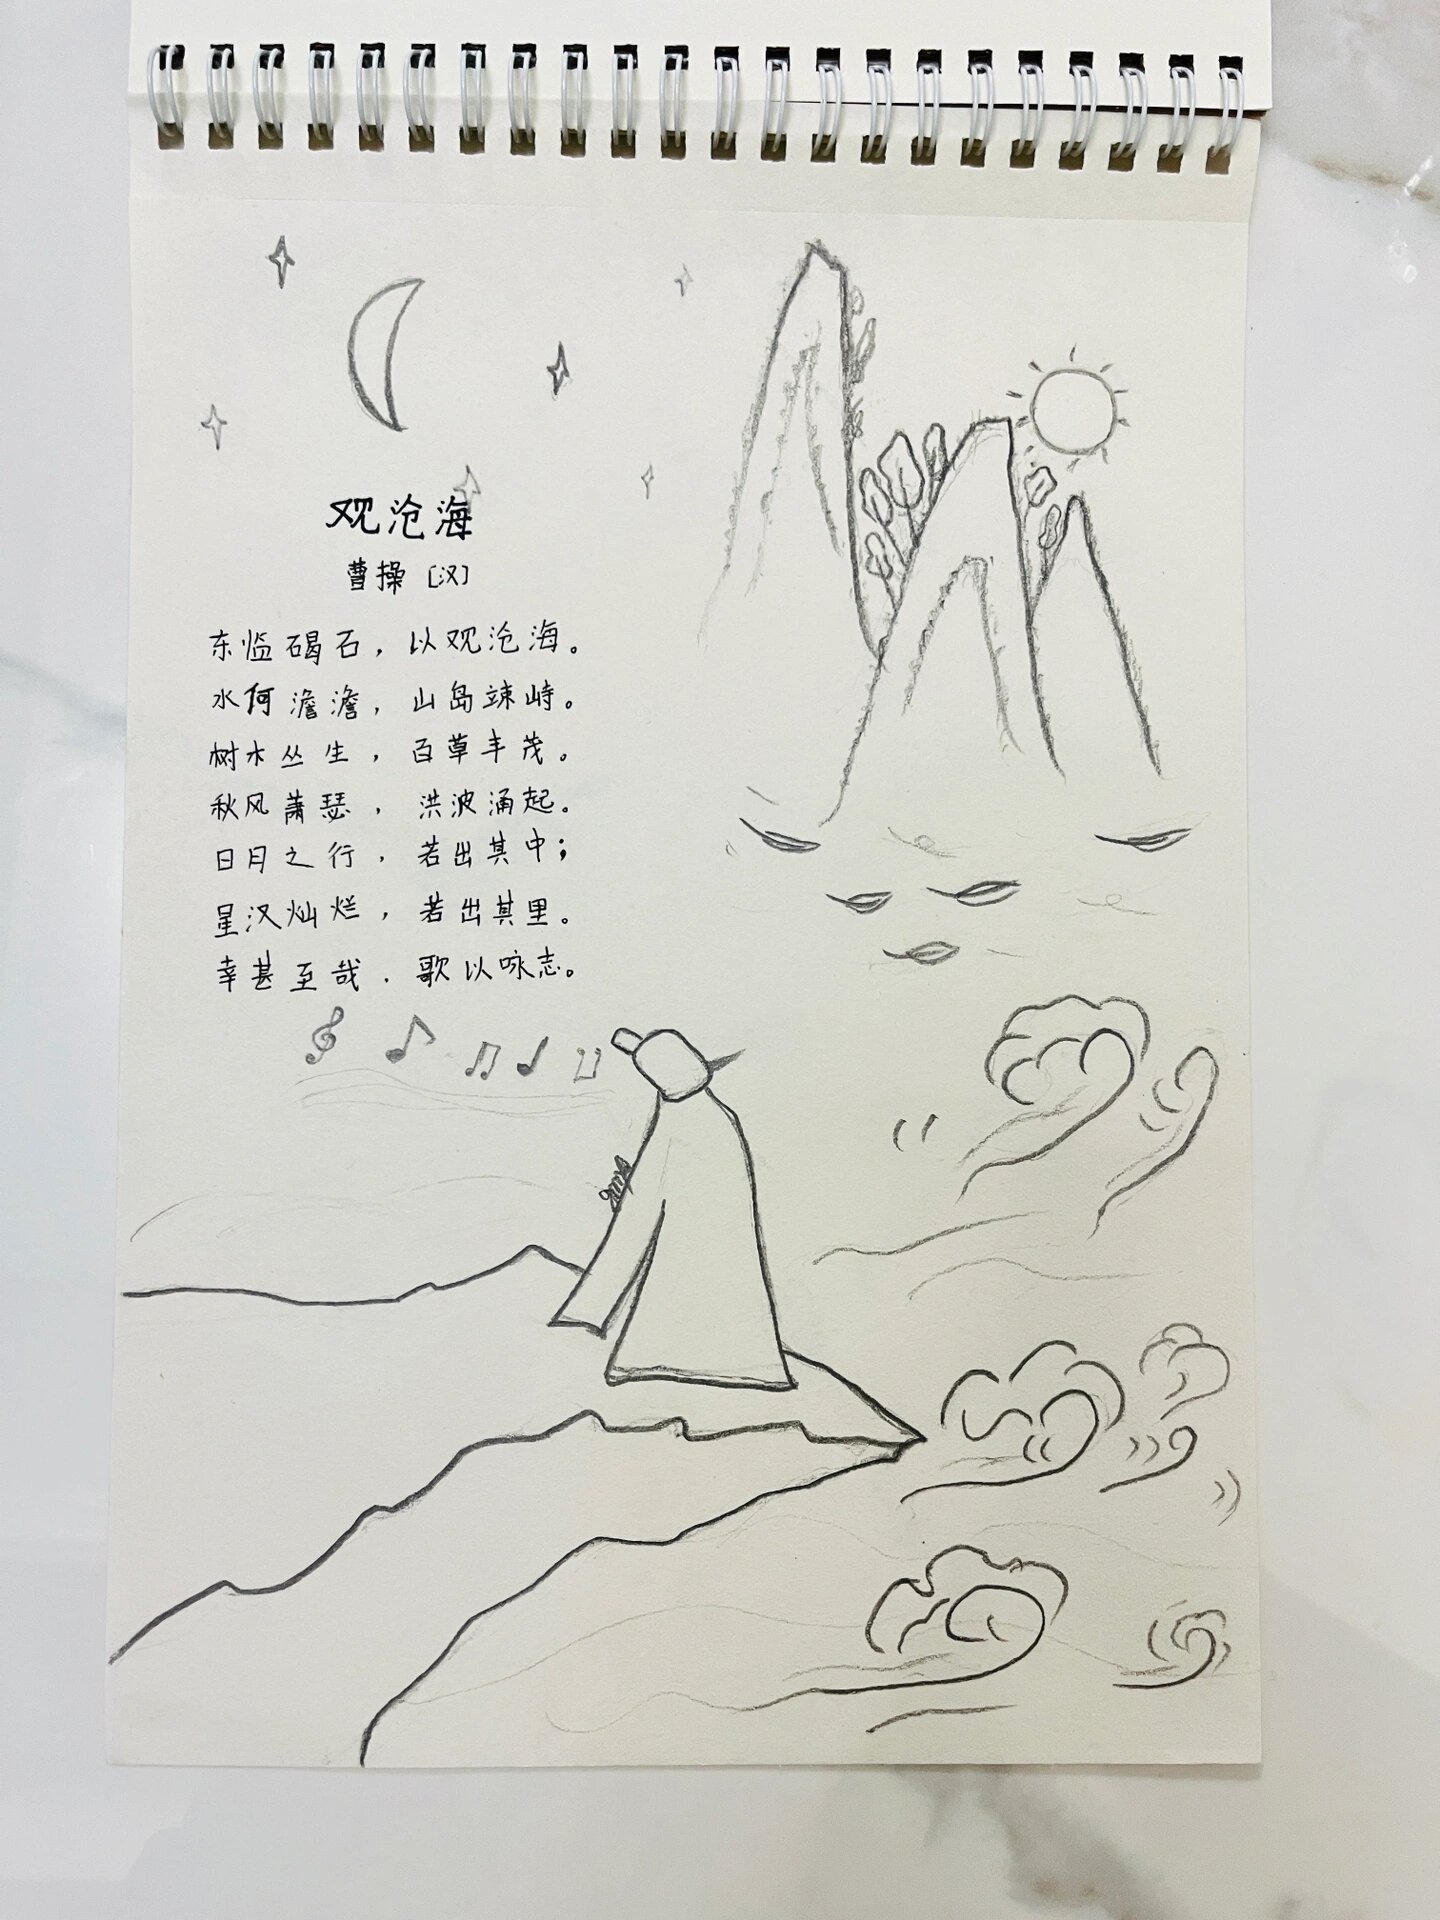 观沧海
曹操〔汉〕
东临碣石，以观沧海。
水何澹澹，山岛竦峙。
树木丛生，百草丰茂。
秋风萧瑟，洪波涌起。
日月之行，若出其中；
星汉灿烂，若出其里。
幸甚至哉，歌以咏志。